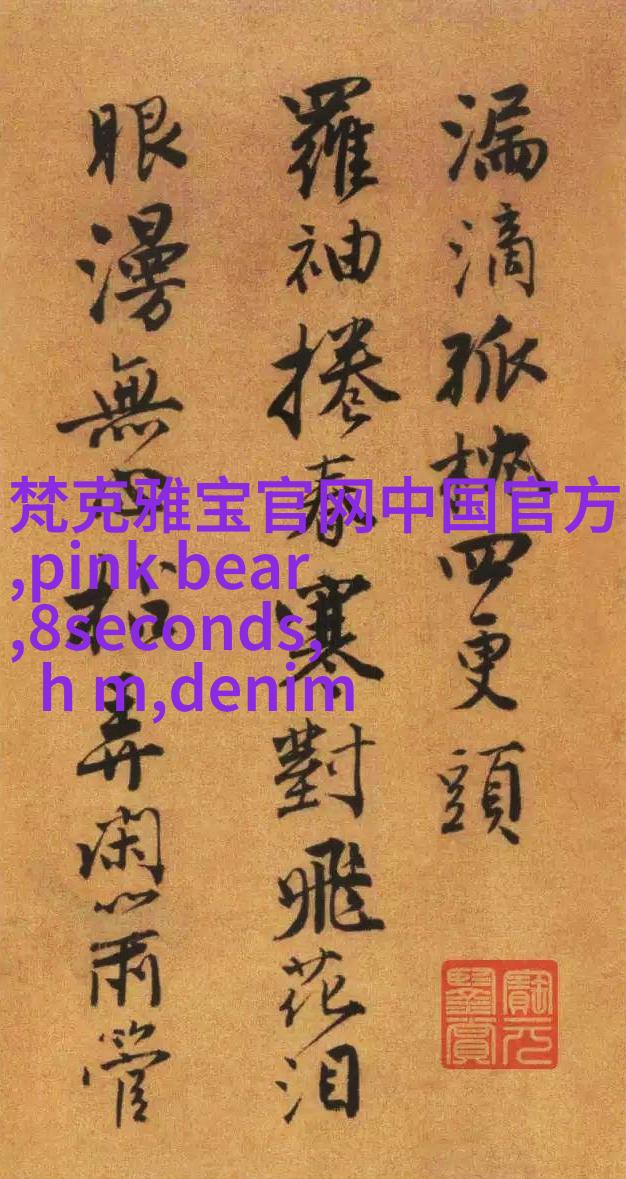 漏滴孤四更頭
羅袖捲春寒對飛花泪
眼漫無弄閑心管
梵克雅宝官网中国官方
,pink bear
,8seconds,
h m,denim